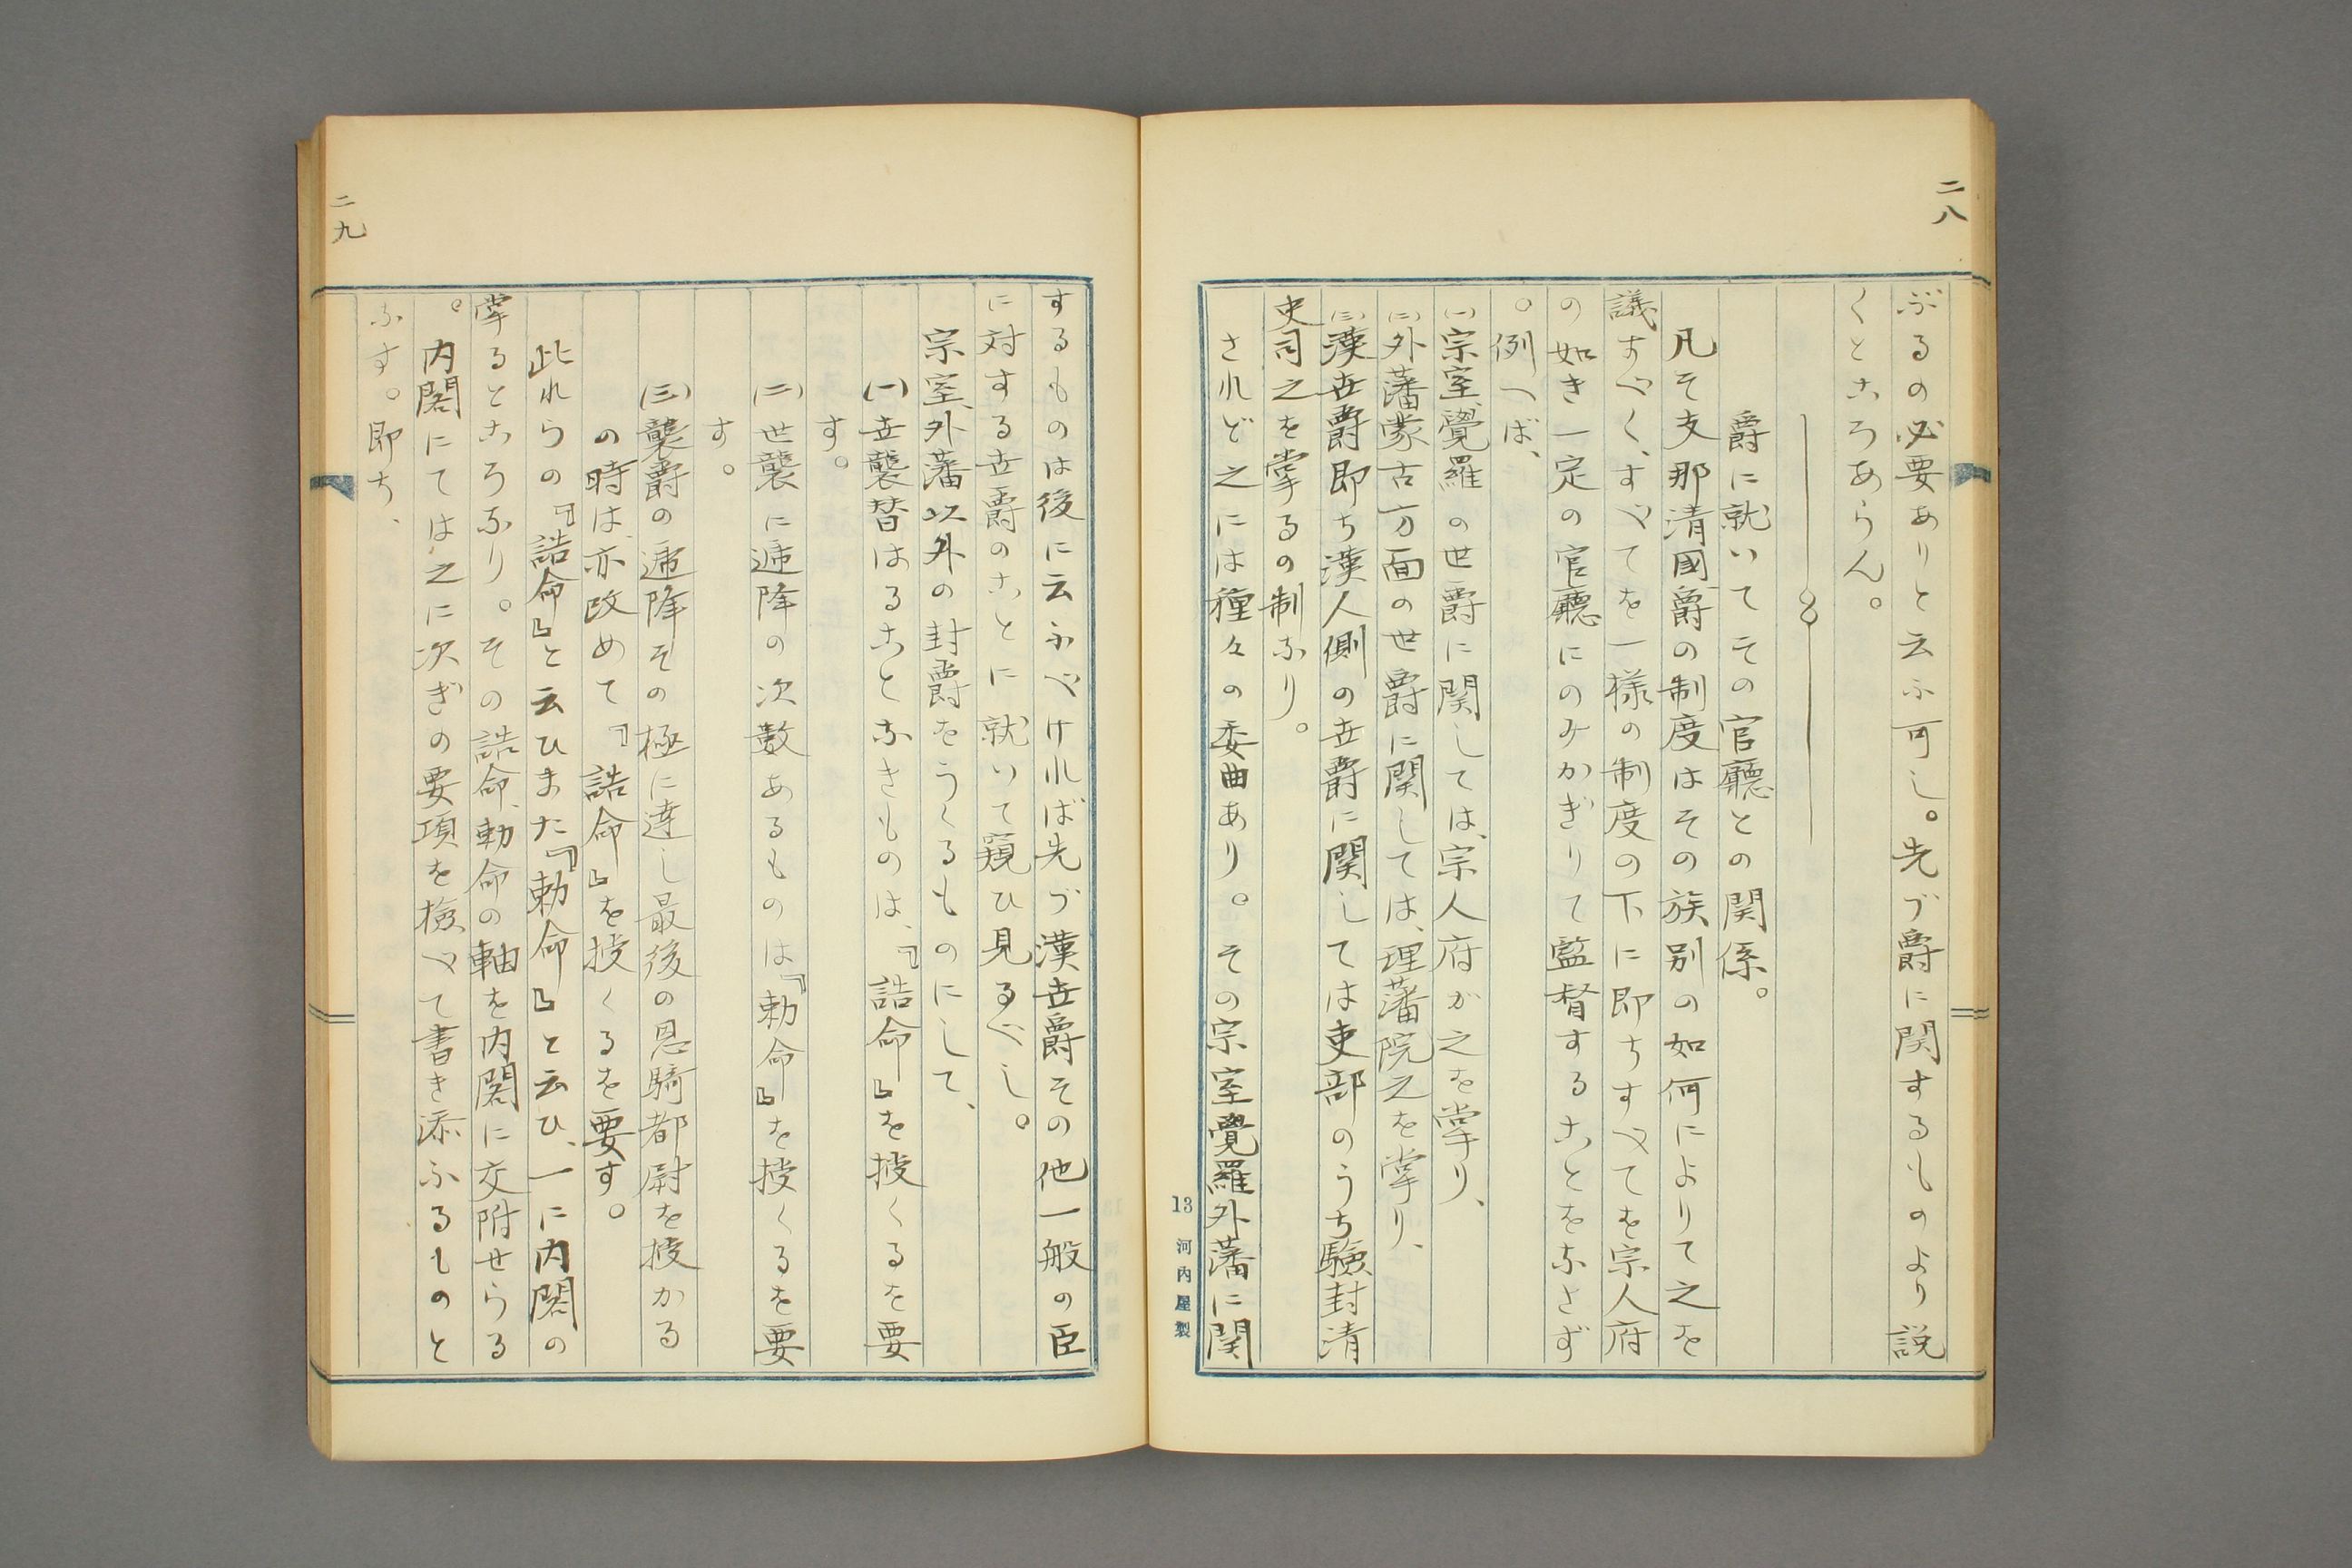 二八
ぶるの必要ありと云ふ可し。先づ爵に関するものより説
くところあらん。
爵に就いてその官廳との関係。
凡そ支那清國爵の制度はその族別の如何によりて之を
議すべく、すべてを一様の制度の下に即ちすべてを宗人府
の如き一定の官廳にのみかぎりて監督することをなさず
。例へば、
(一)宗室、覺羅の世爵に関しては、宗人府が之を掌り、
(二)外藩蒙古方面の世爵に関しては、理藩院之を掌り、
(三)漢世爵即ち漢人側の世爵に関しては吏部のうち驗封清
吏司之を掌るの制なり。
されど之には種々の委曲あり。その宗室覺羅外藩に関
13 河内屋製
するものは後に云ふべければ先づ漢世爵その他一般の臣
に対する世爵のことに就いて窺ひ見るべし。
宗室、外藩以外の封爵をうくるものにして、
(一)世襲替はることなきものは、『誥命』を授くるを要
す。
(二)世襲に遞降の次数あるものは『勅命』を授くるを要
す。
(三)襲爵の遞降その極に達し最後の恩騎都尉を授かる
の時は、亦改めて『誥命』を授くるを要す。
此れらの『誥命』と云ひまた『勅命』と云ひ、一に内閣の
掌るところなり。その誥命、勅命の軸を内閣に交附せらる
。内閣にては之に次ぎの要項を檢べて書き添ふるものと
なす。即ち、
二九